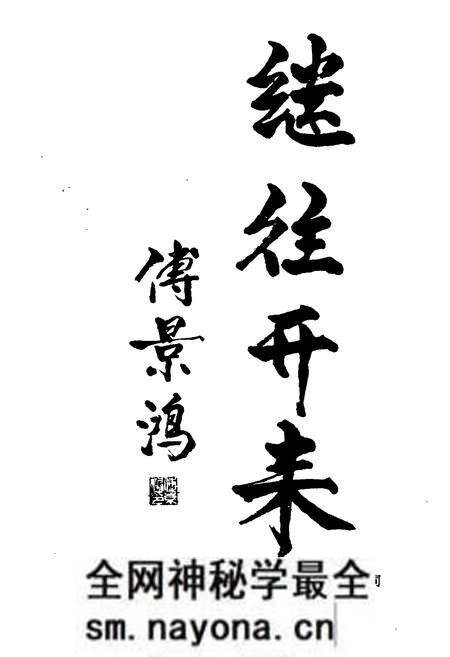 继往开来
傅景鸿
全网神秘学最全
sm.nayona.cn